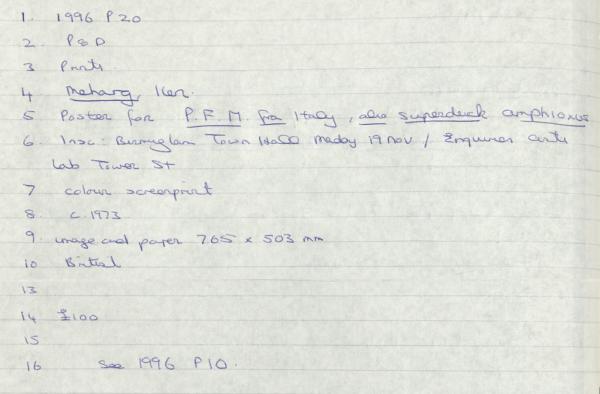 1. 1996 P 20
2. P & D
3 Prints
4 Meharg, Ken.
5 Poster for P.F.M. fra Italy, also superduck amphioxus
6. Insc: Birmingham Town Hall Monday 19 Nov / Enquiries Arts
Lab Tower St
7 colour screenprint
8. c. 1973
9 image and paper 765 x 503 mm
10 British
13
14 £100
15
16 See 1996 P10.